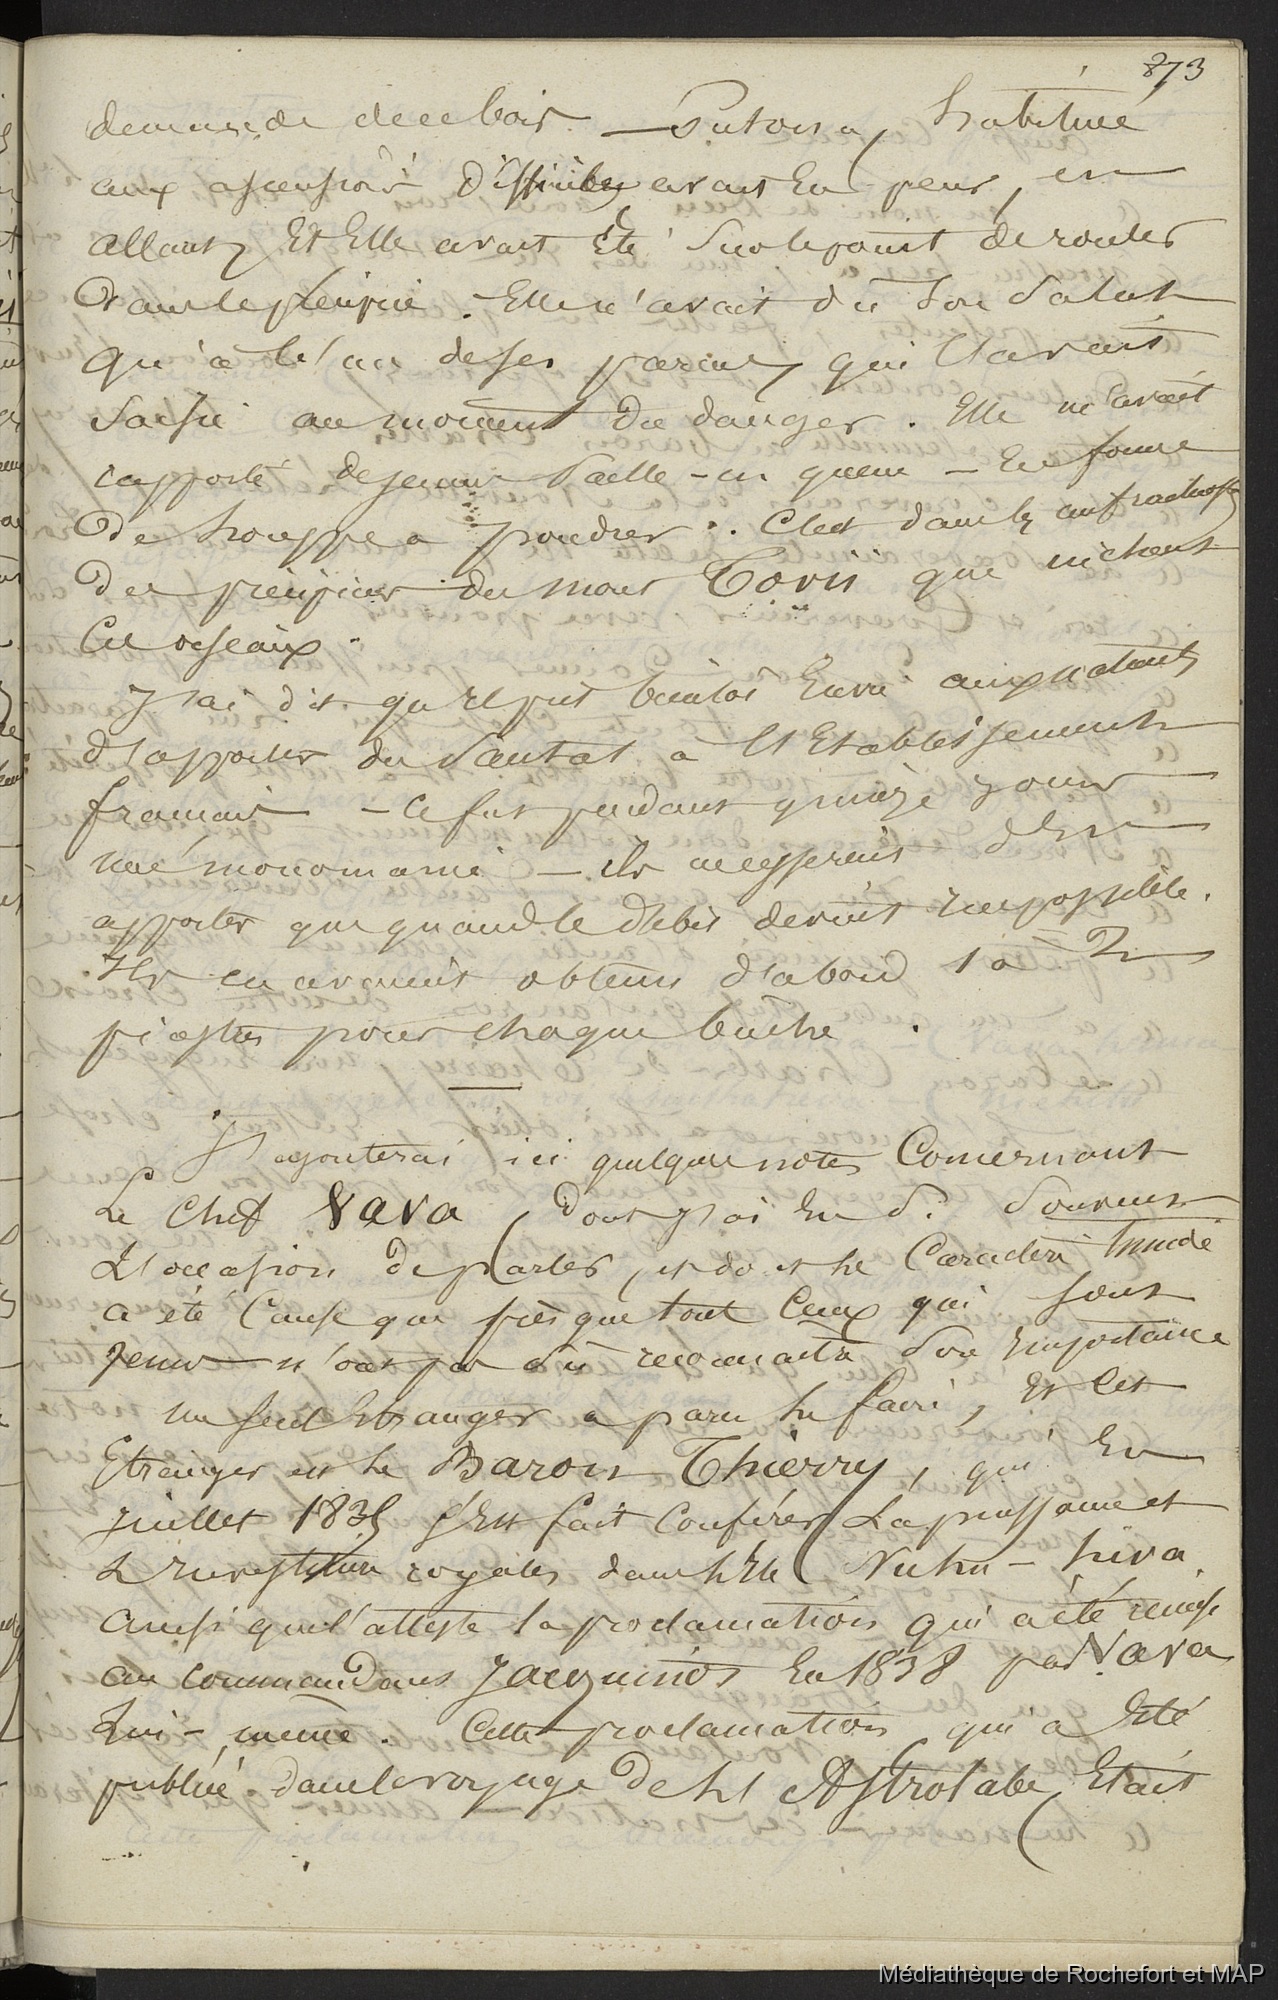 873
demande de ce bois. — Putona, habituée
aux ascensions difficiles, avait eu peur, en
allant, et elle avait été sur le point de rouler
dans le précipice. Elle n'avait dû son salut
qu'à l'un de ses parens, qui l'avait
saisie au moment du danger. Elle m'avait
apporté de jeunes paille-en-queue — en forme
de houppe à poudrer. C'est dans les anfractuosités
des précipices du mont Tovii que nichent
ces oiseaux.
J'ai dit qu'il prit bientôt envie aux natures
d'apporter du santal à l'Etablissement
français — ce fut pendant quinze jours
une monomanie — ils ne cessèrent d'en
apporter que quand le débit devint impossible.
Ils en avaient obtenu d'abord 1 à 2
piastres pour chaque bûche.
J'ajouterai ici quelques notes concernant
le chef Vava, dont j'ai eu si souvent
l'occasion de parler, et dont le caractère timide
a été cause que presque tout ceux qui sont
venus n'ont pas su reconnaître son importance
un seul etranger a paru le faire, et cet
etranger est le Baron Thierry, qui en
juillet 1835 s'est fait conférer la puissance et
l'investiture royales dans l'île Nuhu-hiva
ainsi que l'atteste la proclamation qui a été remise
au commandant Jacquinot en 1838 par Vava
lui-même. Cette proclamation qui a été
publiée dans le voyage de l'Astrolabe, était
Médiathèque de Rochefort et MAP